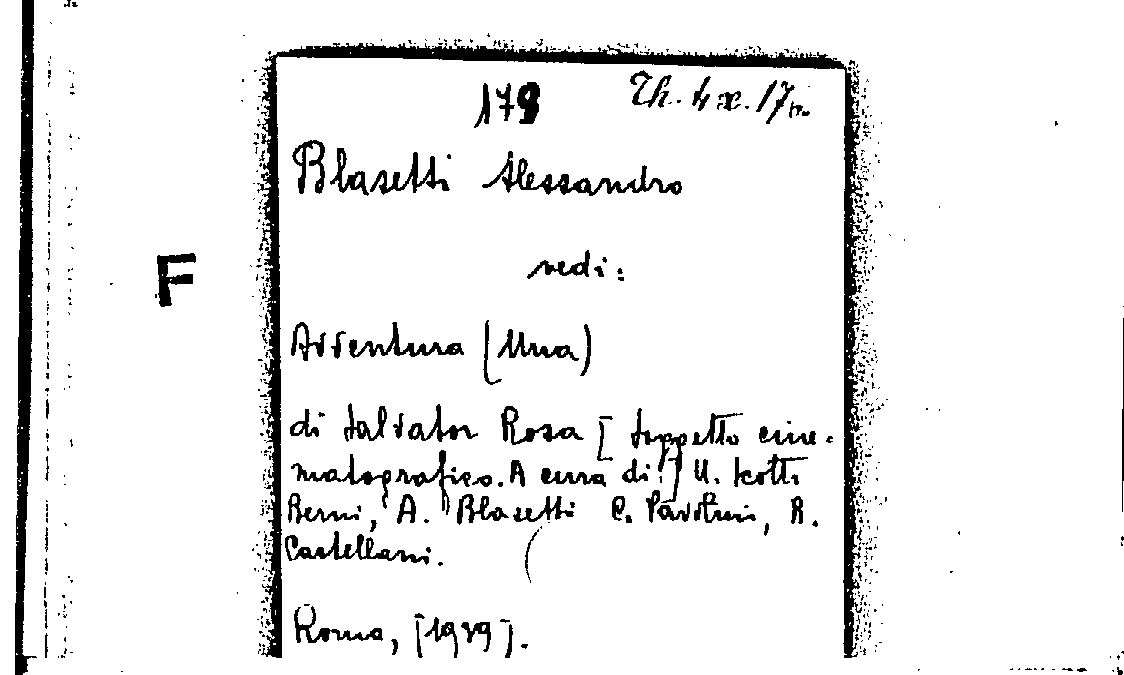 179 Th. 4 x. 17
Blasetti Alessandro
vedi:
F
Avventura (Una)
di Salvator Rosa [Soggetto cine-
matografico. A cura di:] U. Scotti
Berni, A. Blasetti C. Pavolini, R.
Castellani.
Roma, [1939].